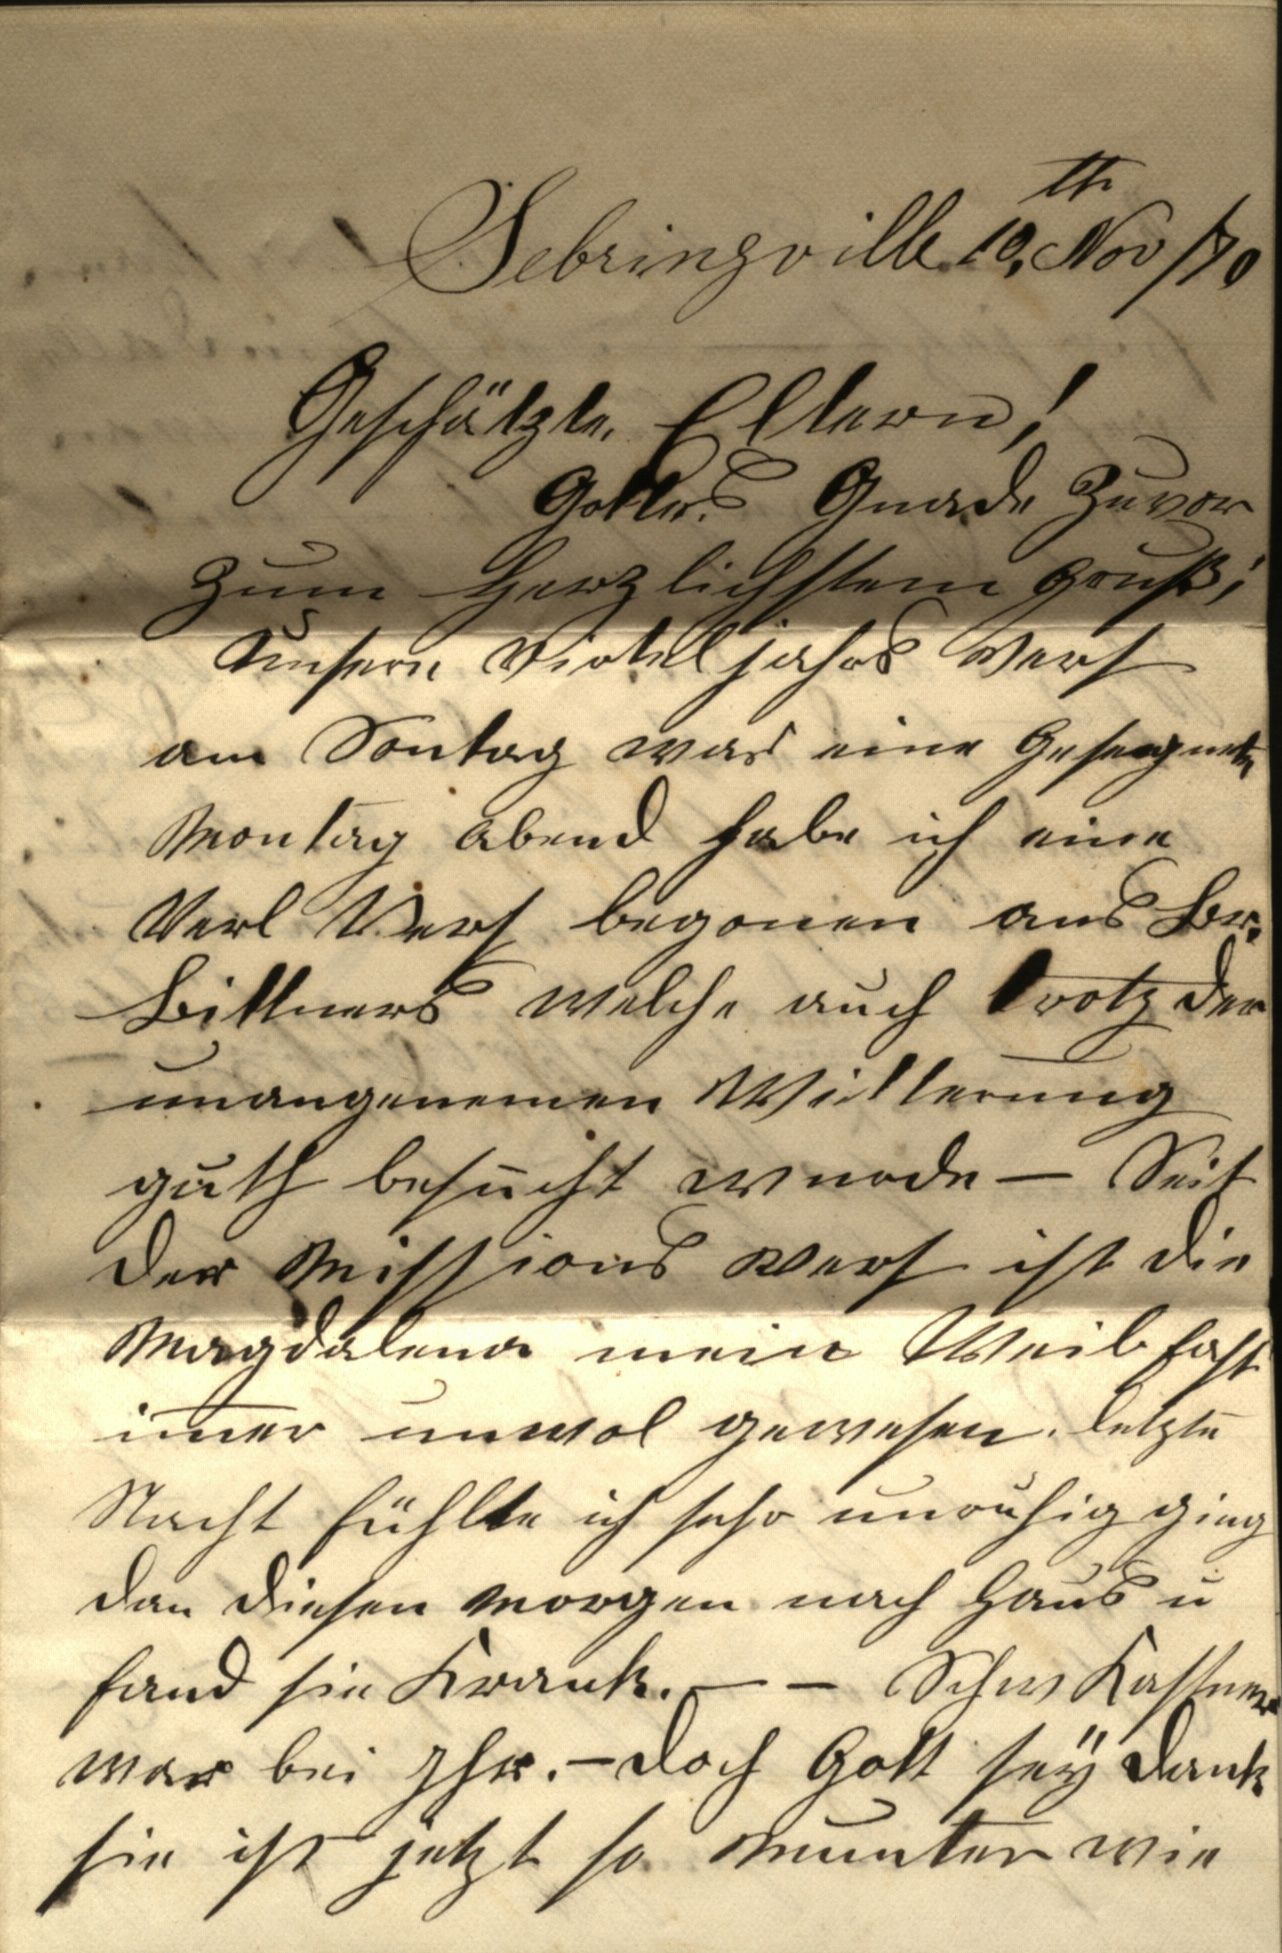 Sebringville 10th, Nov /70,
Geschätzte Eltern!
Gottes Gnade Zuvor
Zum Herzlichstem Gruß!
Unsere Viertel jahrs Vers
am Sontag war eine Gesegnete
Montag abend habe ich eine
Verl Vers begonen aus Br.
Bittners welche auch trotz der
unangenemen Witterung
guth besucht wurde — Seit
der Missions Vers ist die
Magdalena mein Weib fast
imer unwol gewesen. letzte
Nacht fühlte ich sehr unruhig ging
dan diesen Morgen nach Haus u
fand sie Krank. — – Schw Kastner
war bei Ihr. – Doch Gott seÿ Dank
sie ist jetzt so Munter wie